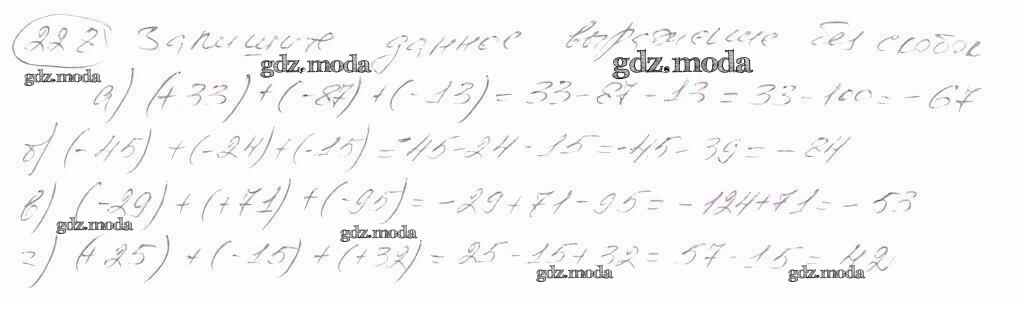 227 Запишите данное выражение без скобок
gdz.moda gdz.moda gdz.moda
а) (+33) + (-87) + (-13) = 33 - 87 - 13 = 33 - 100 = - 67
б) (-45) + (-24) + (-15) = -45 - 24 - 15 = -45 - 39 = - 84
в) (-29) + (+71) + (-95) = - 29 + 71 - 95 = - 124 + 71 = - 53
gdz.moda gdz.moda
г) (+25) + (-15) + (+32) = 25 - 15 + 32 = 57 - 15 = 42
gdz.moda gdz.moda